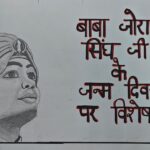 बाबा जोरा
सिंघ जी
के
जन्म दिवस
पर विशेष